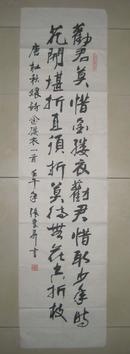 勸君莫惜金縷衣勸君惜取少年時
花開堪折直須折莫待無花空折枝
唐杜秋娘詩金縷衣一首